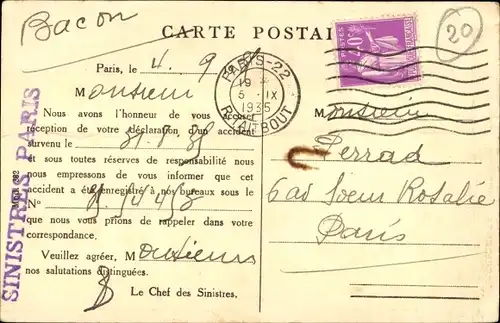 Bacon
CARTE POSTALE
20
Paris, le 4. 9
PARIS-22
19
5 - IX
1935
R. TAITBOUT
POSTES
40c
Monsieur
Nous avons l'honneur de vous accuser
réception de votre déclaration d'un accident
survenu le 31-8-35
et sous toutes réserves de responsabilité nous
nous empressons de vous informer que cet
accident a été enregistré à nos bureaux sous le
N°
que nous vous prions de rappeler dans votre
correspondance.
Veuillez agréer, Monsieur
nos salutations distinguées.
Le Chef des Sinistres.
SINISTRES PARIS
Monsieur
Perrad
6 av Soeur Rosalie
Paris